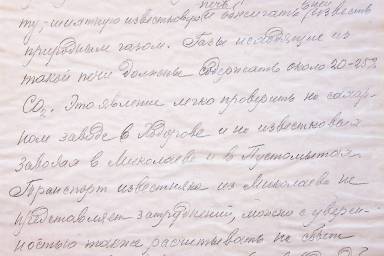 печь
ту; шахтную известковую обжигать известь
природным газом. Газы исходящие из
такой печи должны содержать около 20-25%
CO₂. Это явление легко проверить на сахар-
ном заводе в Ходорове и на известковых
заводах в Миколаеве и в Пустомытах.
Транспорт известняка из Миколаева не
представляет затруднений, можно с уверен-
ностью также расчитывать на сбыт